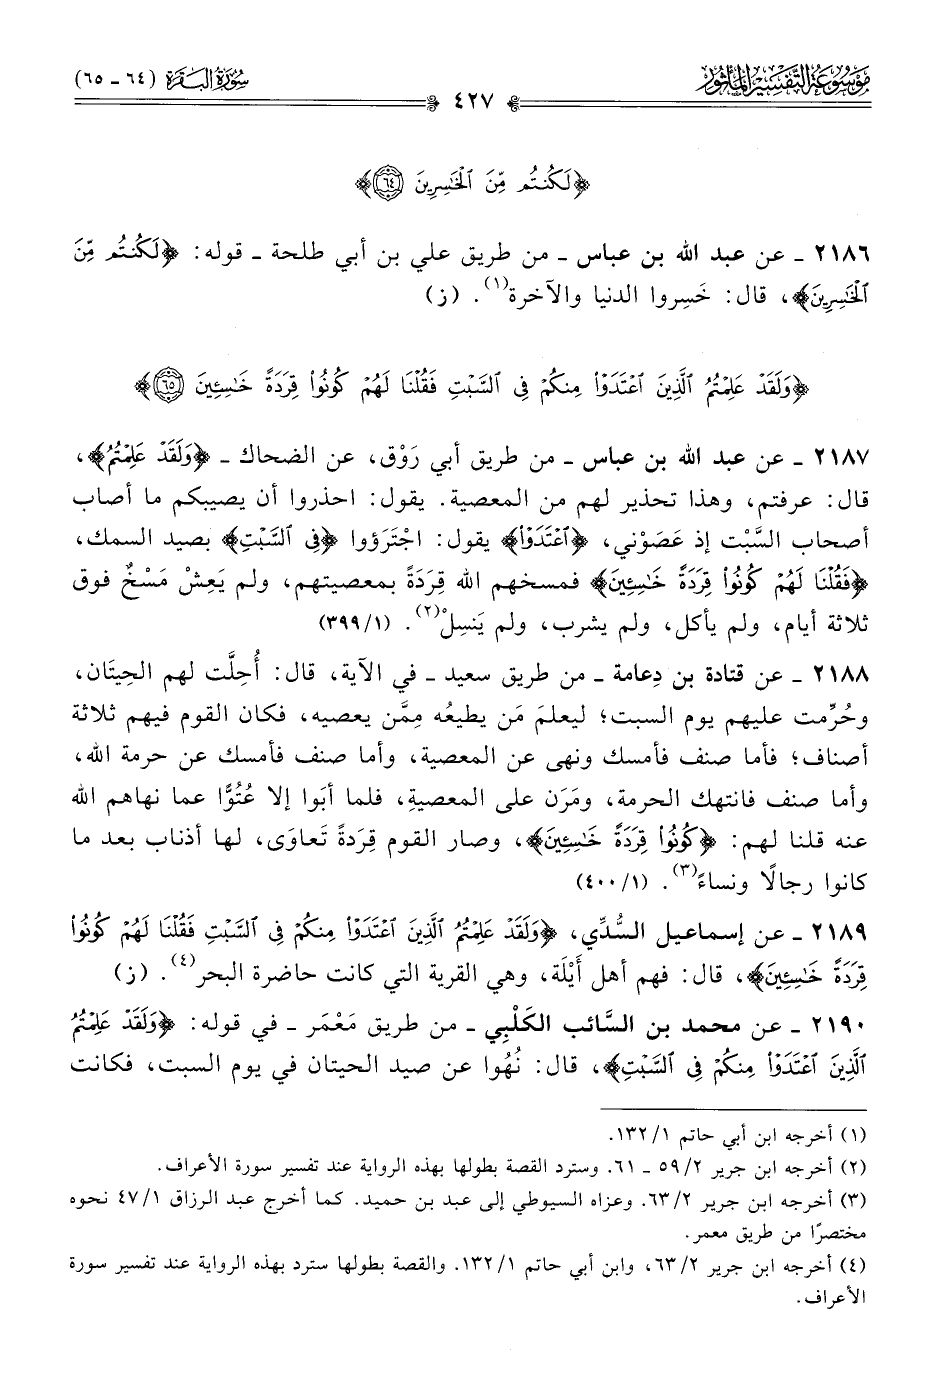 مَوْسُوعَة التَّفْسِيْر المَأْثُور
سُورَةُ البَقَرَة (٦٤ ـ ٦٥)
٤٢٧
﴿لَكُنتُم مِّنَ ٱلْخَٰسِرِينَ ٦٤﴾
٢١٨٦ ـ عن عبد الله بن عباس ـ من طريق علي بن أبي طلحة ـ قوله: ﴿لَكُنتُم مِّنَ
ٱلْخَٰسِرِينَ﴾، قال: خَسِروا الدنيا والآخرة(١). (ز)
﴿وَلَقَدْ عَلِمْتُمُ ٱلَّذِينَ ٱعْتَدَوْا۟ مِنكُمْ فِى ٱلسَّبْتِ فَقُلْنَا لَهُمْ كُونُوا۟ قِرَدَةً خَٰسِـِٔينَ ٦٥﴾
٢١٨٧ ـ عن عبد الله بن عباس ـ من طريق أبي رَوْق، عن الضحاك ـ ﴿وَلَقَدْ عَلِمْتُمُ﴾،
قال: عرفتم، وهذا تحذير لهم من المعصية. يقول: احذروا أن يصيبكم ما أصاب
أصحاب السَّبْت إذ عَصَوْني، ﴿ٱعْتَدَوْا۟﴾ يقول: اجْتَرَؤوا ﴿فِى ٱلسَّبْتِ﴾ بصيد السمك،
﴿فَقُلْنَا لَهُمْ كُونُوا۟ قِرَدَةً خَٰسِـِٔينَ﴾ فمسخهم الله قِرَدَةً بمعصيتهم، ولم يَعِشْ مَسْخٌ فوق
ثلاثة أيام، ولم يأكل، ولم يشرب، ولم يَنسِلْ(٢). (٣٩٩/١)
٢١٨٨ ـ عن قتادة بن دِعامة ـ من طريق سعيد ـ في الآية، قال: أُحِلَّت لهم الحِيتَان،
وحُرِّمت عليهم يوم السبت؛ ليعلمَ مَن يطيعُه مِمَّن يعصيه، فكان القوم فيهم ثلاثة
أصناف؛ فأما صنف فأمسك ونهى عن المعصية، وأما صنف فأمسك عن حرمة الله،
وأما صنف فانتهك الحرمة، ومَرَن على المعصيةِ، فلما أبَوا إلا عُتُوًّا عما نهاهم الله
عنه قلنا لهم: ﴿كُونُوا۟ قِرَدَةً خَٰسِـِٔينَ﴾، وصار القوم قِرَدةً تَعاوَى، لها أذناب بعد ما
كانوا رجالًا ونساءً(٣). (٤٠٠/١)
٢١٨٩ ـ عن إسماعيل السُّدِّي، ﴿وَلَقَدْ عَلِمْتُمُ ٱلَّذِينَ ٱعْتَدَوْا۟ مِنكُمْ فِى ٱلسَّبْتِ فَقُلْنَا لَهُمْ كُونُوا۟
قِرَدَةً خَٰسِـِٔينَ﴾، قال: فهم أهل أَيْلَة، وهي القرية التي كانت حاضرة البحر(٤). (ز)
٢١٩٠ ـ عن محمد بن السَّائب الكَلْبِي ـ من طريق مَعْمَر ـ في قوله: ﴿وَلَقَدْ عَلِمْتُمُ
ٱلَّذِينَ ٱعْتَدَوْا۟ مِنكُمْ فِى ٱلسَّبْتِ﴾، قال: نُهُوا عن صيد الحيتان في يوم السبت، فكانت
(١) أخرجه ابن أبي حاتم ١٣٢/١.
(٢) أخرجه ابن جرير ٥٩/٢ ـ ٦١. وسترد القصة بطولها بهذه الرواية عند تفسير سورة الأعراف.
(٣) أخرجه ابن جرير ٦٣/٢. وعزاه السيوطي إلى عبد بن حميد. كما أخرج عبد الرزاق ٤٧/١ نحوه
مختصرًا من طريق معمر.
(٤) أخرجه ابن جرير ٦٣/٢، وابن أبي حاتم ١٣٢/١. والقصة بطولها سترد بهذه الرواية عند تفسير سورة
الأعراف.